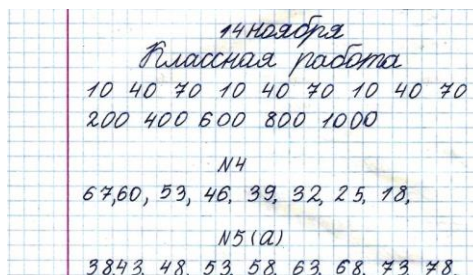 14 ноября
Классная работа
10 40 70 10 40 70 10 40 70
200 400 600 800 1000
N4
67,60, 53, 46, 39, 32, 25, 18,
N5 (а)
38 43, 48, 53, 58, 63, 68, 73, 78